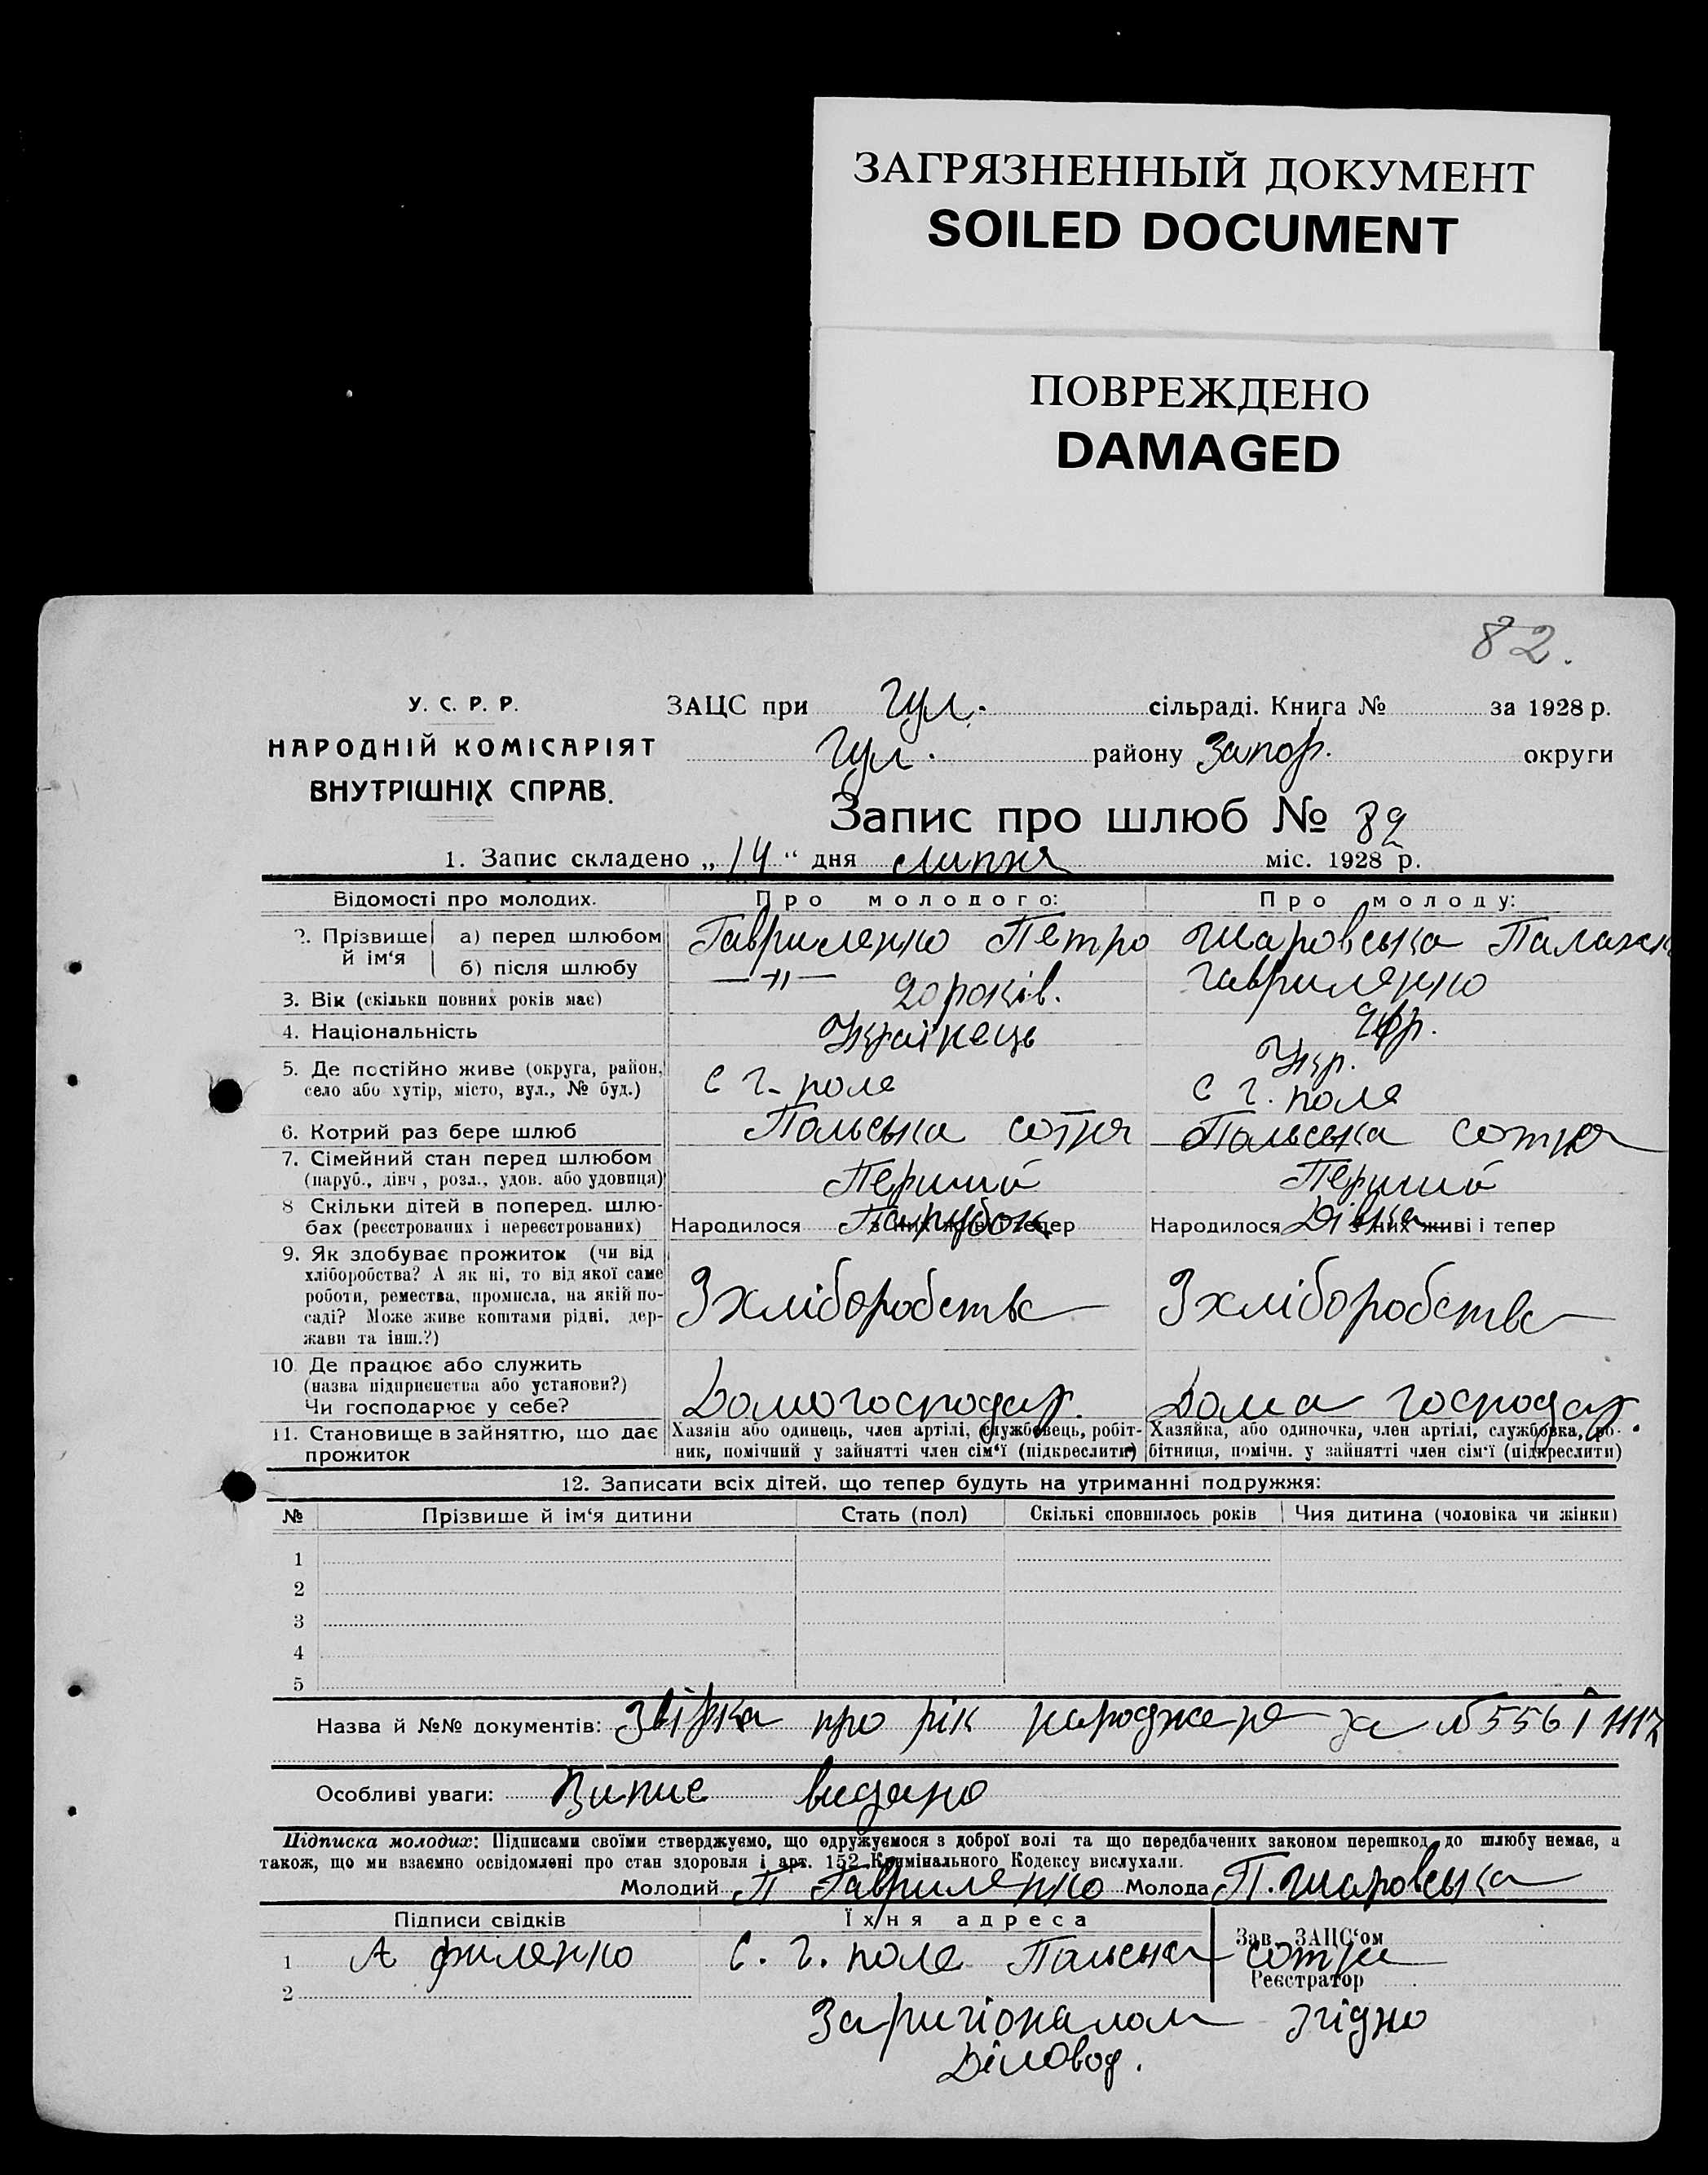 ЗАГРЯЗНЕННЫЙ ДОКУМЕНТ
SOILED DOCUMENT
ПОВРЕЖДЕНО
DAMAGED
82.
У. С. Р. Р.
НАРОДНІЙ КОМІСАРІЯТ
ВНУТРІШНІХ СПРАВ.
ЗАЦС при Гул. сільраді. Книга № за 1928 р.
Гул. району Запор. округи
Запис про шлюб № 82
1. Запис складено „ 14 “ дня липня міс. 1928 р.
Відомості про молодих. Про молодого: Про молоду:
2. Прізвище й ім‘я а) перед шлюбом Гавриленко Петро Шаровська
б) після шлюбу —"— Гавриленко
3. Вік (скільки повних років має) 20 років.
4. Національність Українець Укр.
5. Де постійно живе (округа, район, село або хутір, місто, вул., № буд.) с г. поле с г. поле
Польська сотня Польська сотня
6. Котрий раз бере шлюб Перший Перший
7. Сімейний стан перед шлюбом (паруб., дівч., розл., удов. або удовиця) Парубок Дівка
8 Скільки дітей в поперед. шлюбах (реєстрованих і нереєстрованих) Народилося з них живі і тепер Народилося з них живі і тепер
9. Як здобуває прожиток (чи від хліборобства? А як ні, то від якої саме роботи, ремества, промисла, на якій посаді? Може живе коштами рідні, держави та інш.?) З хліборобства З хліборобства
10. Де працює або служить (назва підприєнства або установи?) Чи господарює у себе? Домогосподар. Дома господар.
11. Становище в зайняттю, що дає прожиток Хазяїн або одинець, член артілі, службовець, робітник, помічний у зайнятті член сім‘ї (підкреслити) Хазяйка, або одиночка, член артілі, службовка, робітниця, помічн. у зайнятті член сім‘ї (підкреслити)
12. Записати всіх дітей, що тепер будуть на утриманні подружжя:
№ Прізвише й ім‘я дитини Стать (пол) Скількі сповнилось років Чия дитина (чоловіка чи жінки)
1
2
3
4
5
Назва й №№ документів: про рік за № 556 і
Особливі уваги: Випис видано
Підписка молодих: Підписами своїми стверджуємо, що одружуємося з доброї волі та що передбачених законом перешкод до шлюбу немає, а
також, що ми взаємно освідомлені про стан здоровля і арт. 152 Кримінального Кодексу вислухали.
Молодий П Гавриленко Молода П. Шаровська
Підписи свідків Їхня адреса Зав. ЗАЦС‘ом
1 А Филенко С. г. поле Польська сотня
Реєстратор
2
згідно
Діловод.